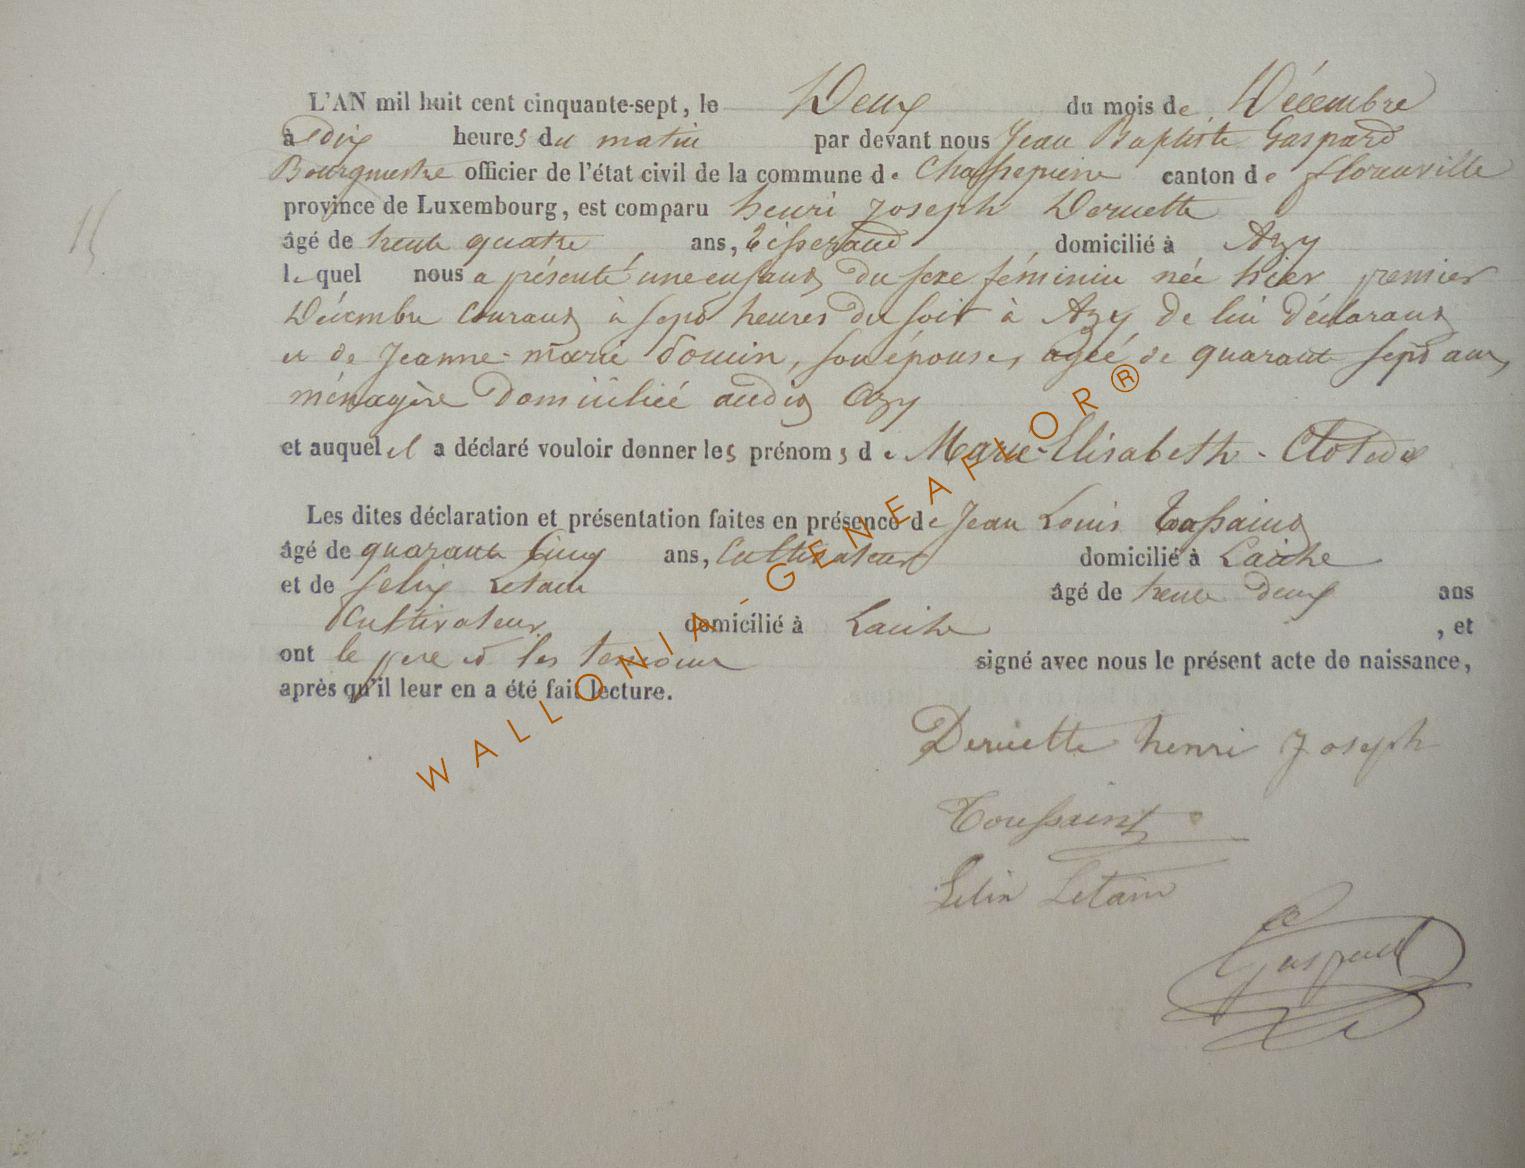 L'AN mil huit cent cinquante-sept, le Deux du mois de Décembre
à dix heures du matin par devant nous Jean Baptiste Gaspard
Bourgmestre officier de l'état civil de la commune de Chassepierre canton de florenville
province de Luxembourg, est comparu henri joseph Deruette
âgé de trente quatre ans, Tisserand domicilié à Azy
lequel nous a présenté une enfant du sexe féminin née hier premier
Décembre courant à sept heures du soir à Azy de lui déclarant
et de Jeanne-marie Domin, son épouse, agée de quarante sept ans,
ménagère domiciliée audit Azy
et auquel il a déclaré vouloir donner les prénoms de Marie-Elisabeth-Clotilde
15
Les dites déclaration et présentation faites en présence de Jean Louis Tassaint
âgé de quarante cinq ans, Cultivateur domicilié à Laiche
et de felix Letain âgé de trente deux ans
Cultivateur domicilié à Laiche, et
ont le père et les temoins signé avec nous le présent acte de naissance,
après qu'il leur en a été fait lecture.
Deruette henri Joseph
Toussaint
Felix Letain
Gaspard
WALLONIA - GENEAPHOR®